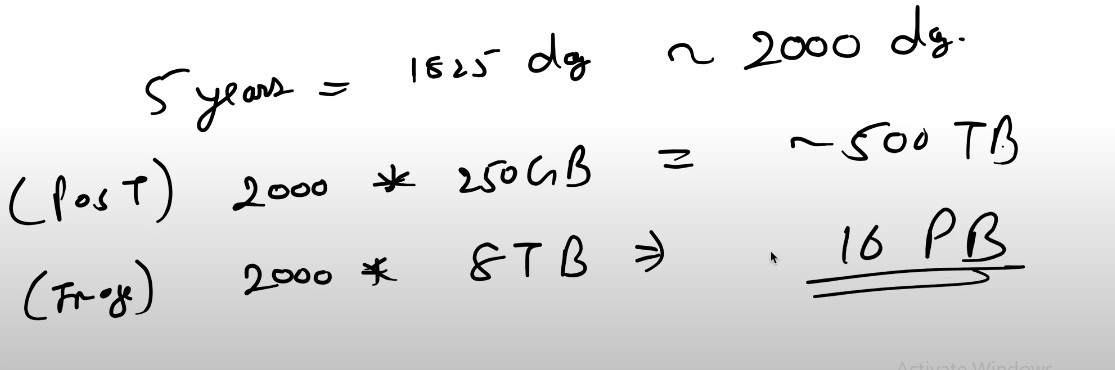 5 years = 1825 dy ~ 2000 dy.
(Post) 2000 * 250GB = ~500 TB
(Image) 2000 * 8TB ⇒ 16 PB
Activate Windows